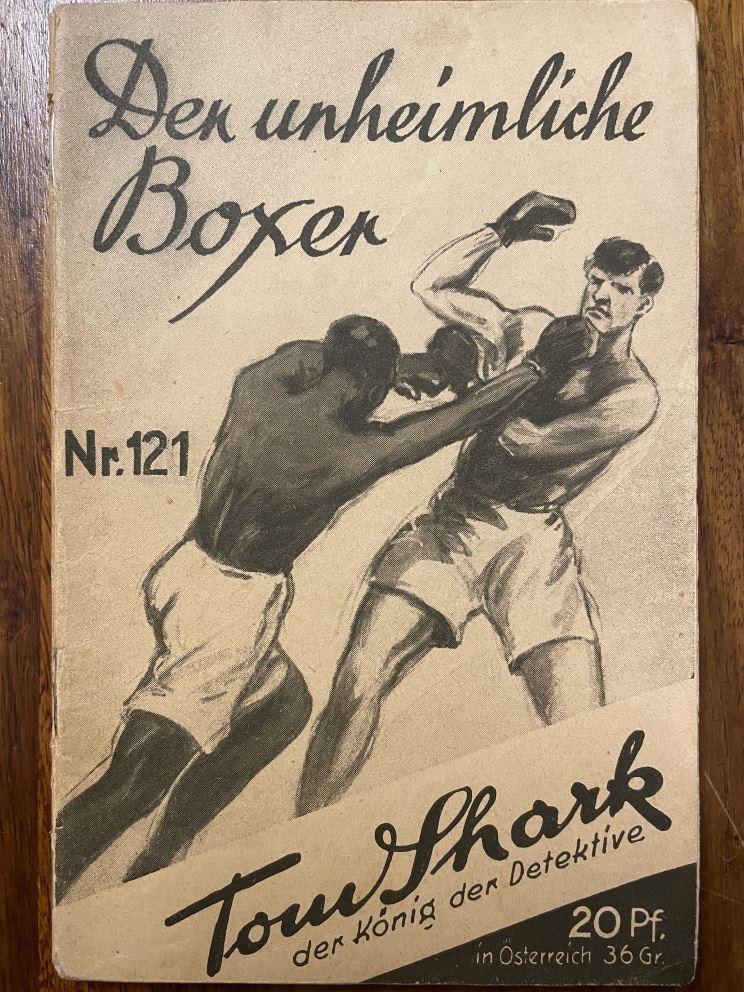 Der unheimliche
Boxer
Nr. 121
Tom Shark
der König der Detektive
20 Pf.
in Österreich 36 Gr.